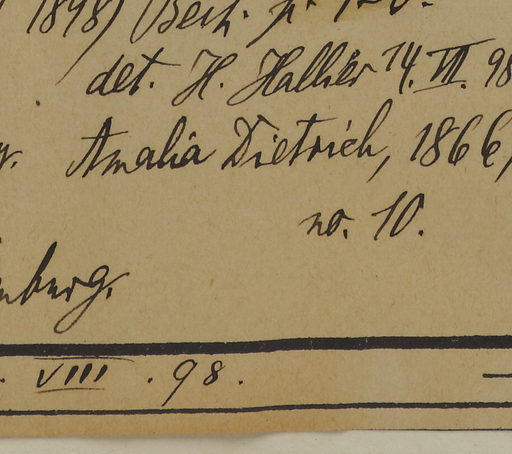 1898) Beih. p.
det. H. Hallier 14. VII. 98
Amalia Dietrich, 1866,
no. 10.
burg.
VIII . 98.